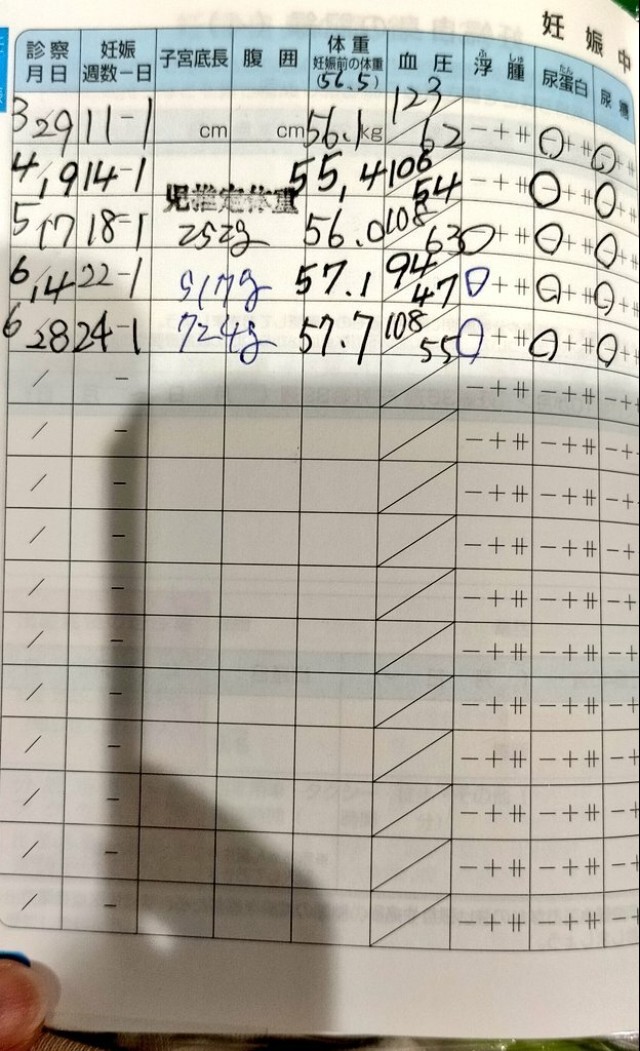 妊娠中
診察月日 妊娠週数-日 子宮底長 腹囲 体重 妊娠前の体重 (56.5) 血圧 浮腫 ふしゅ 尿蛋白 たん 尿糖
3/29 11-1 cm cm 56.1kg 123/62 - + ⧺ ⊖ + ⧺ ⊖
4/19 14-1 児推定体重 55.4 106/54 - + ⧺ ⊖ + ⧺ ⊖
5/17 18-1 252g 56.0 108/63 ⊖ + ⧺ ⊖ + ⧺ ⊖
6/14 22-1 517g 57.1 94/47 ⊖ + ⧺ ⊖ + ⧺ ⊖
6/28 24-1 724g 57.7 108/55 ⊖ + ⧺ ⊖ + ⧺ ⊖
/ - / - + ⧺ - + ⧺ - +
/ - / - + ⧺ - + ⧺ - +
/ - / - + ⧺ - + ⧺ - +
/ - / - + ⧺ - + ⧺ - +
/ - / - + ⧺ - + ⧺ - +
/ - / - + ⧺ - + ⧺ - +
/ - / - + ⧺ - + ⧺ - +
/ - / - + ⧺ - + ⧺ - +
/ - / - + ⧺ - + ⧺ - +
/ - / - + ⧺ - + ⧺ - +
/ - / - + ⧺ - + ⧺ - +